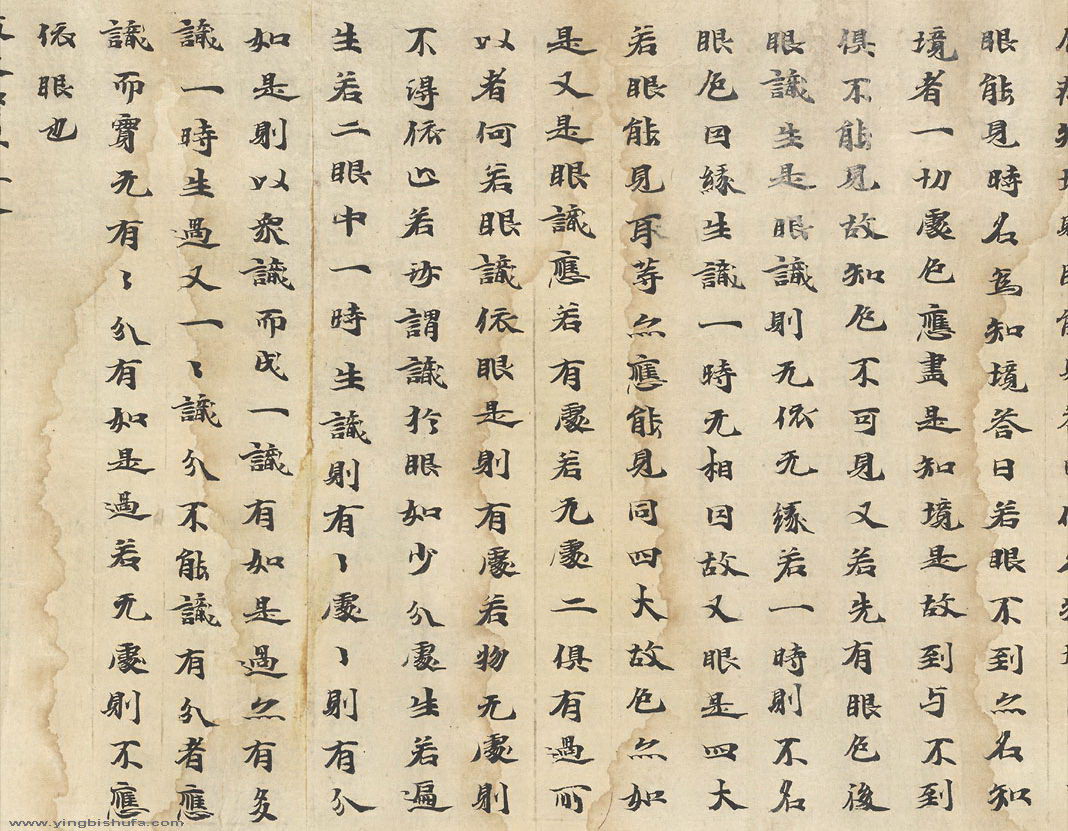 眼能見時名為知境荅曰若眼不到亦名知
境者一切處色應盡是知境是故到与不到
俱不能見故知色不可見又若先有眼色後
眼識生是眼識則无依无緣若一時則不名
眼色因緣生識一時无相因故又眼是四大
若眼能見耳等亦應能見同四大故色亦如
是又是眼識應若有處若无處二俱有過所
以者何若眼識依眼是則有處若物无處則
不得依止若汝謂識於眼如少分處生若遍
生若二眼中一時生識則有〻處〻則有分
如是則以衆識而成一識有如是過亦有多
識一時生過又一〻識分不能識有分者應
識而實无有〻分有如是過若无處則不應
依眼也
www.yingbishufa.com